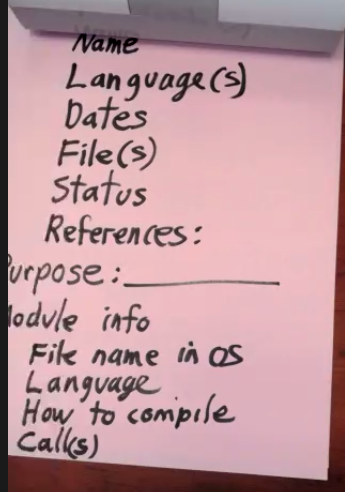 Name
Language(s)
Dates
File(s)
Status
References:
Purpose:
Module info
File name in OS
Language
How to compile
Call(s)